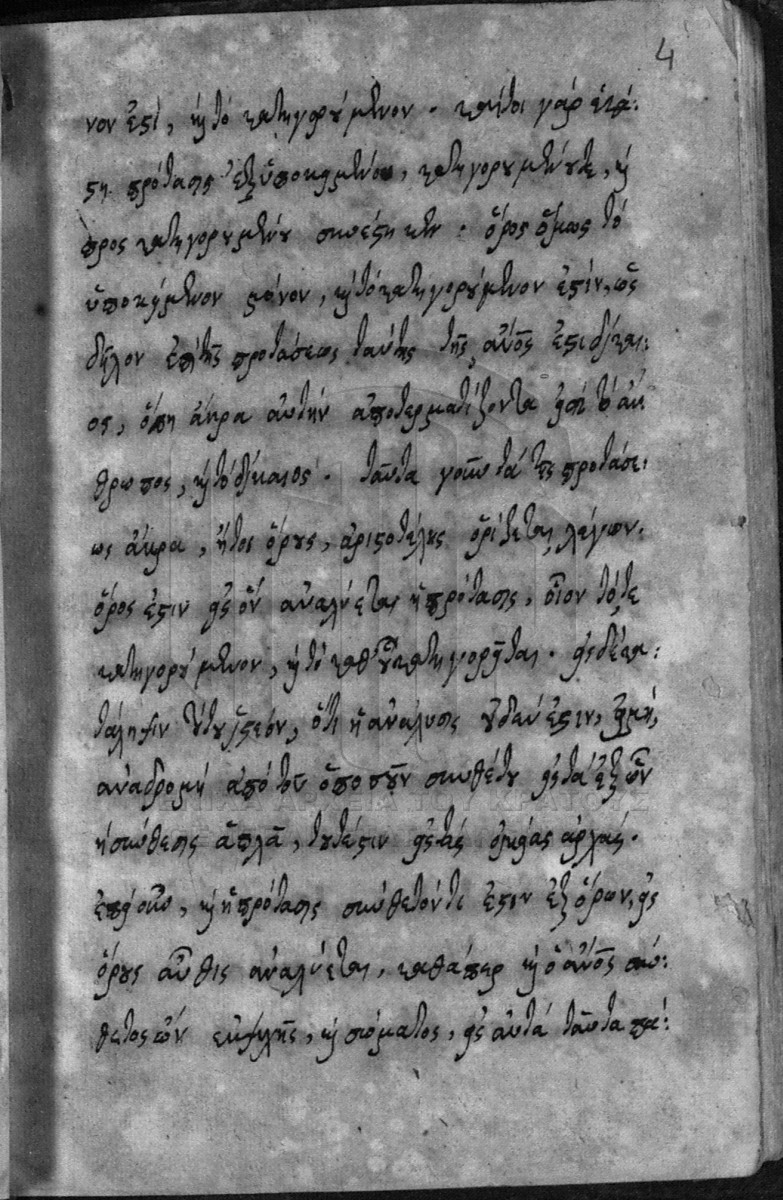 4
νον ἐστὶ, καὶ τὸ κατηγορούμενον. καίτοι γὰρ ἑκά:
στη πρότασις ἐξ ὑποκειμένου, κατηγορουμένου τε, καὶ
προς κατηγορουμένου συνέστηκεν. ὅρος ὅμως τὸ
ὑποκείμενον μόνον, καὶ τὸ κατηγορούμενον ἐστὶν, ὡς
δῆλον ἐπὶ τῆς προτάσεως ταύτης τῆς, ἄνος ἐστὶ δίκαι:
ος, ὅπη ἄκρα αὐτὴν ἀποτερματίζοντα ἐστὶ τὸ ἄν
θρωπος, καὶ τὸ δίκαιος. ταῦτα γοῦν τὰ τῆς προτάσε:
ως ἄκρα, ἤτοι ὅρους, ἀριστοτέλης ὁρίζεται λέγων.
ὅρος ἐστιν εἰς ὃν ἀναλύεται ἡ πρότασις, οἷον τό, τε
κατηγορούμενον, καὶ τὸ καθ' οὗ κατηγορῆται. εἰς δὲ κα:
τάληψιν τούτου ἰστέον, ὅτι ἡ ἀνάλυσις οὐδέν ἐστιν, εἰμὴ,
ἀναδρομὴ ἀπὸ τοῦ ὁποσοῦν συνθέτου εἰς τὰ ἐξ ὧν
ἡ σύνθεσις ἁπλᾶ, τουτέστιν εἰς τὰς οἰκείας ἀρχάς.
ἐπεὶ οὖν, καὶ ἡ πρότασις σύνθετόν τι ἐστιν ἐξ ὅρων, εἰς
ὅρους αὖθις ἀναλύεται, καθάπερ καὶ ὁ ἄνος σύν:
θετος ὢν ἐκ ψυχῆς, καὶ σώματος, εἰς αὐτὰ ταῦτα πά: